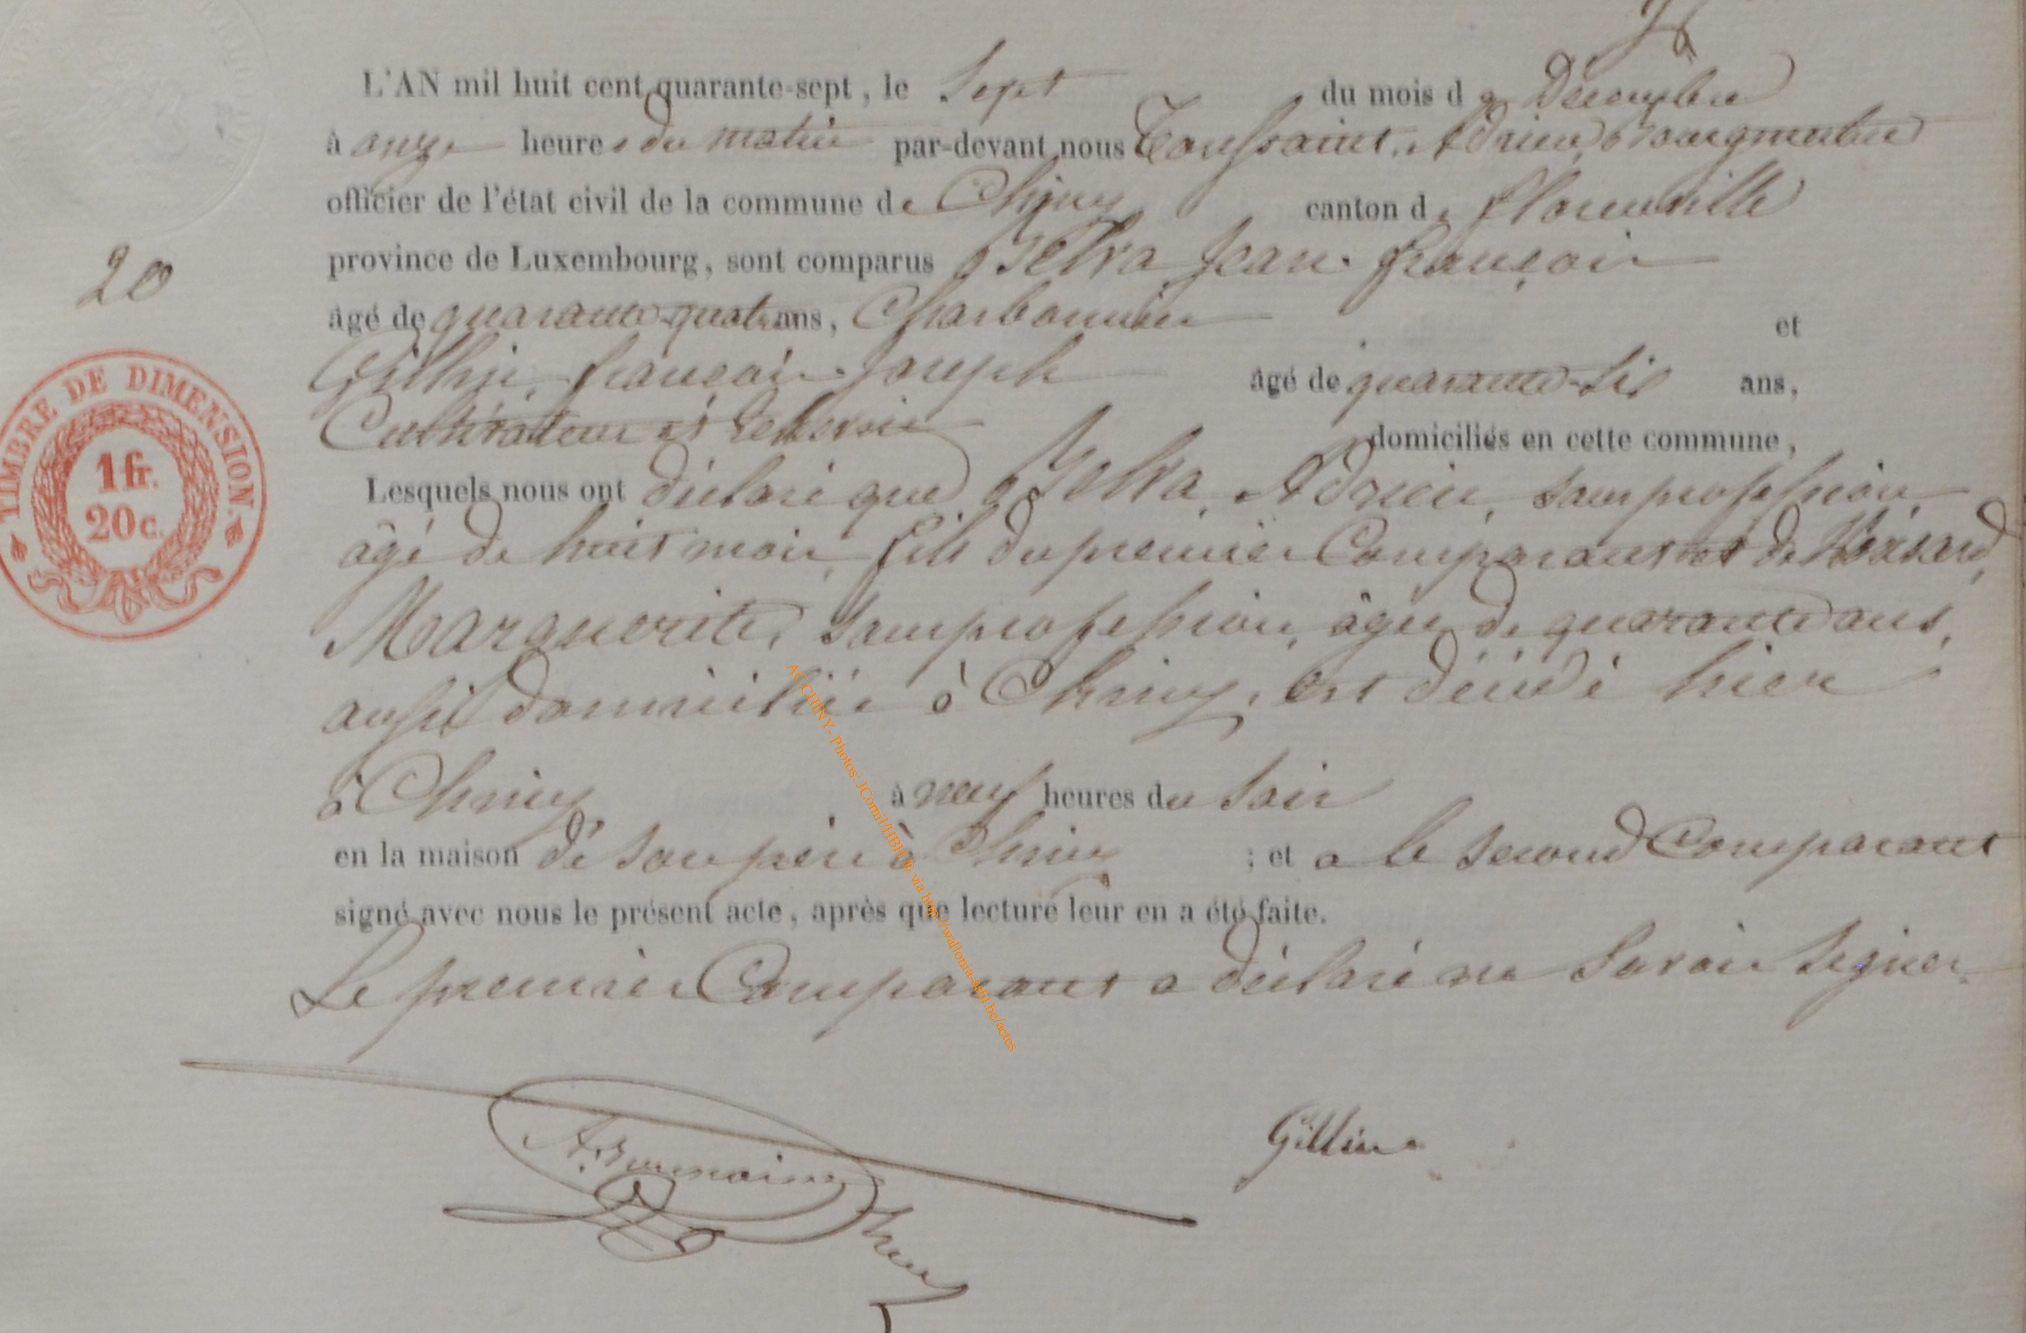 L'AN mil huit cent quarante-sept, le Sept du mois de Décembre
à onze heures du matin par-devant nous Toussaint, Adrien, Bourgmestre
officier de l'état civil de la commune de Chiny canton de florenville
province de Luxembourg, sont comparus Jean françois
âgé de quarante-quatre ans, Charbonnier et
Gillin, françois-Joseph âgé de quarante-Six ans,
Cultivateur et domiciliés en cette commune,
Lesquels nous ont déclaré que Adrien, sans profession,
âgé de huit mois, fils du premier Comparant et de
Marguerite, sans profession, âgée de quarante ans,
aussi domiciliée à Chiny, est décédé hier
à Chiny, à neuf heures du Soir
en la maison de son père à Chiny ; et a le second Comparant
signé avec nous le présent acte, après que lecture leur en a été faite.
Le premier Comparant a déclaré ne Savoir Signer.
20
TIMBRE DE DIMENSION.
1 fr.
20 c.
Gillin